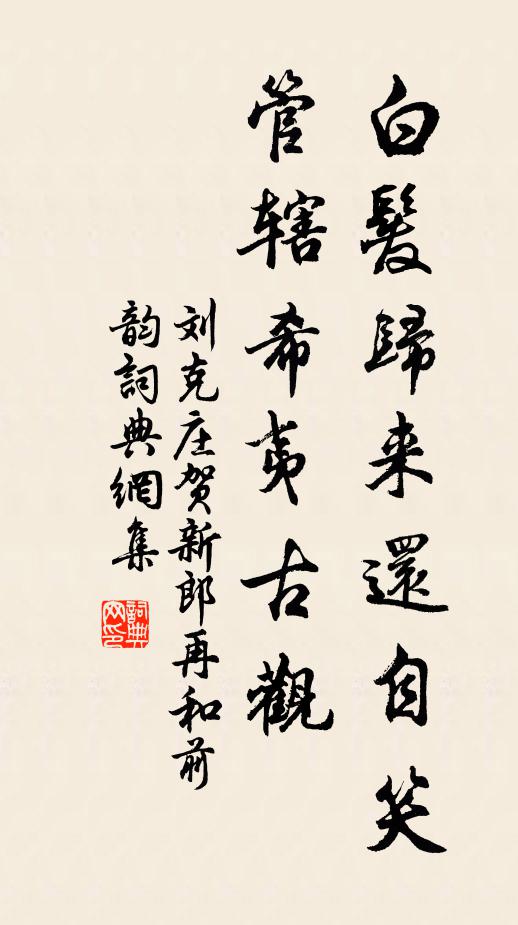 白髮歸来還自笑
管辖希夷古觀
刘克庄贺新郎再和前
韵詞典網集
詞典網印